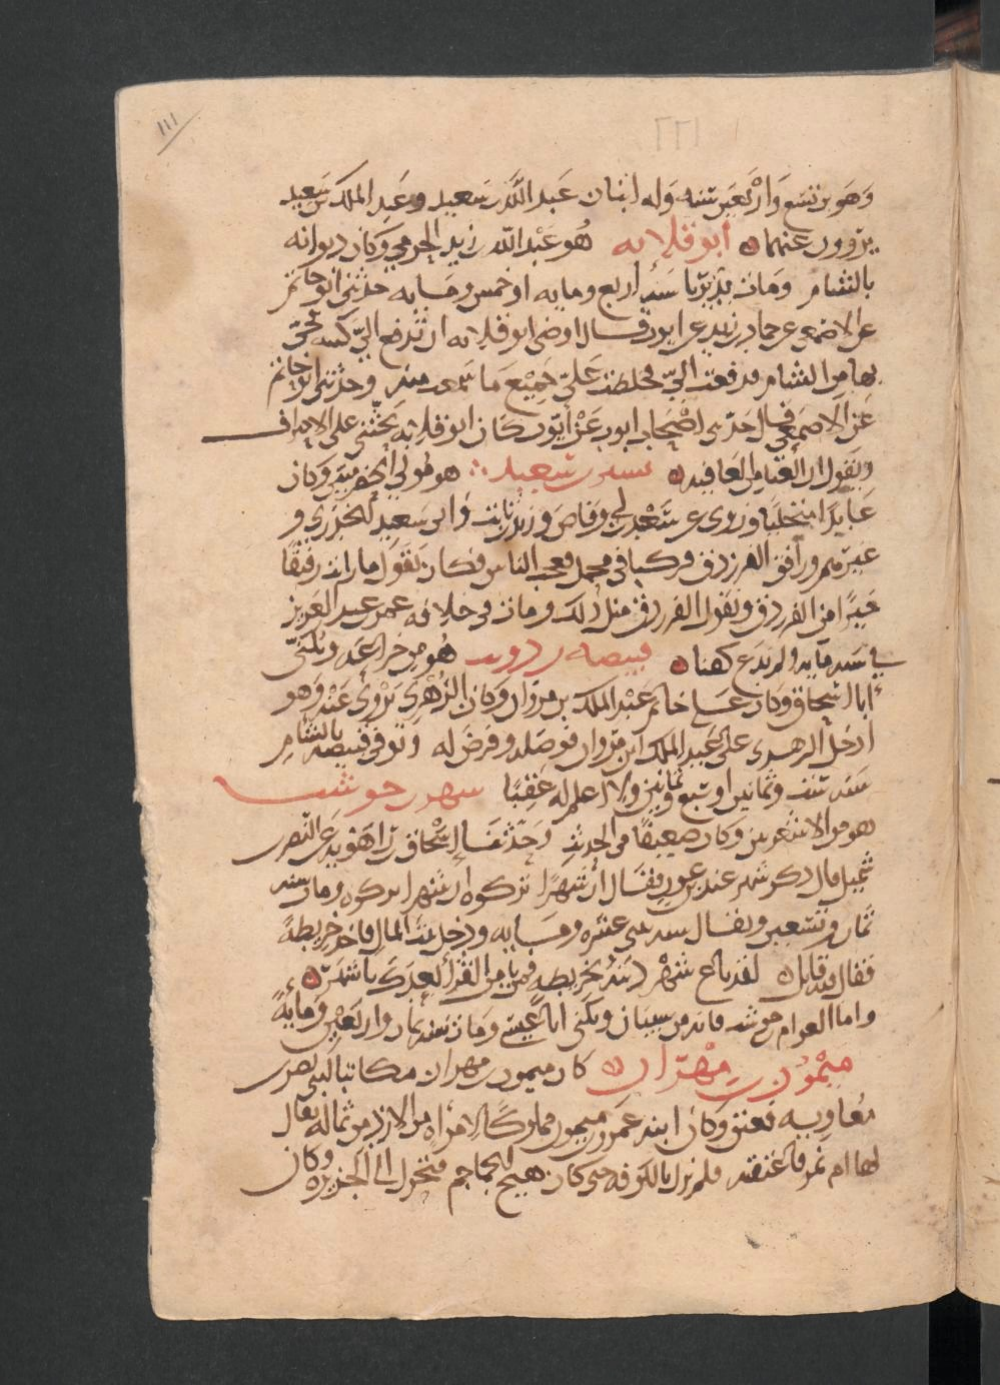 ١١١
٢٢١
وهو بن تسع وأربعين سنه وله ابنان عبد الله بن سعيد وعبد الملك بن سعيد
يروون عنهما ابو قلابه هو عبد الله بن زيد الجرمي وكان ديوانه
بالشام ومات بداريا سنه اربع ومايه او خمس ومايه حدثني ابو حاتم
عن الاصمعي عن حماد بن زيد عن ايوب قال اوصى ابو قلابه ان تدفع الي كتبه فجئ
بها من الشام فدفعت الي فخلطت علي جميع ما سمعت منه وحدثني ابو حاتم
عن الاصمعي قال حدثني اصحاب ايوب عن أيوب كان ابو قلابه يحثني على الاحتراف
ويقول ان الغنا من العافيه بسر بن سعيد هو مولى الحضرميين وكان
عابدا متخليا وروى عن سعد بن ابي وقاص وزيد بن ثابت وابي سعيد الخدري و
غيرهم ورافق الفرزدق فركبا في محمل فعجب الناس فكان يقول ما رايت رفيقا
خيرا من الفرزدق ويقول الفرزدق مثل ذلك ومات في خلافه عمر بن عبد العزيز
في سنه مايه ولم يدع كفنا قبيصه بن ذويب هو من خزاعه ويكنى
أبا اسحاق وكان على خاتم عبد الملك بن مروان وكان الزهري يروي عنه وهو
ادخل الزهري على عبد الملك ابن مروان فوصله وفرض له وتوفي قبيصه بالشام
سنه ست وثمانين او سبع وثمانين ولا اعلم له عقبا شهر بن حوشب
هو من الاشعريين وكان ضعيفا في الحديث وحدثنا إسحاق بن راهويه عن النضر بن
شميل قال ذكر شهر عند بن عون فقال ان شهرا تركوه ان شهرا تركوه ومات سنه
ثمان وتسعين ويقال سنه اثنتي عشره ومايه ودخل بيت المال فاخذ خريطة
فقال فيه قايل لقد باع شهر دينه بخريطه فمن يامن القراء بعدك يا شهر
واما العوام بن حوشب فانه من شيبان ويكنى ابا عيسى ومات سنه ثمان واربعين ومايه
ميمون بن مهران كان ميمون بن مهران مكاتبا لبني نصر بن
معاويه فعتق وكان ابنه عمرو بن ميمون مملوكا لامراه من الازد من ثماله يقال
لها ام نمر فاعتقته فلم يزل بالكوفه حتى كان هيج الجماجم فتحول الى الجزيره وكان